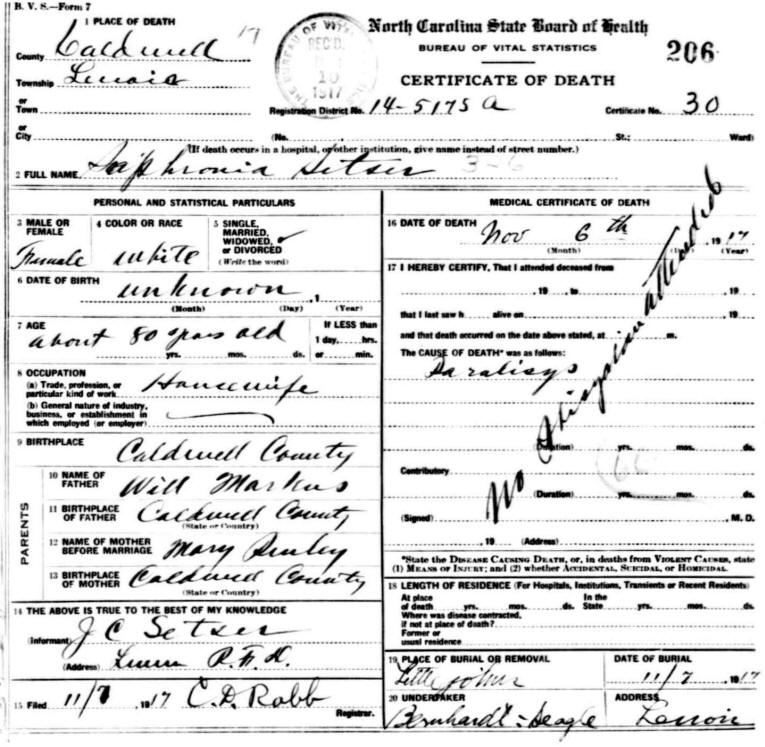 B. V. S.—Form 7
1 PLACE OF DEATH
County Caldwell 17
Township Lenoir
or
Town
or
City
BUREAU OF VITAL
REC'D.
10
1917
North Carolina State Board of Health
BUREAU OF VITAL STATISTICS
206
CERTIFICATE OF DEATH
Registration District No. 14-5175 A Certificate No. 30
(No. St.; Ward)
(If death occurs in a hospital, or other institution, give name instead of street number.)
2 FULL NAME Saiphronia Setser 3-6
PERSONAL AND STATISTICAL PARTICULARS
3 MALE OR FEMALE
Female
4 COLOR OR RACE
white
5 SINGLE, MARRIED, WIDOWED, or DIVORCED
(Write the word)
6 DATE OF BIRTH
unknown , 1
(Month) (Day) (Year)
7 AGE
about 80 years old
yrs. mos. ds.
If LESS than
1 day, hrs.
or min.
8 OCCUPATION
(a) Trade, profession, or
particular kind of work Housewife
(b) General nature of industry,
business, or establishment in
which employed (or employer)
9 BIRTHPLACE
Caldwell County
PARENTS
10 NAME OF FATHER
Will Markus
11 BIRTHPLACE OF FATHER
Caldwell County
(State or Country)
12 NAME OF MOTHER BEFORE MARRIAGE
Mary
13 BIRTHPLACE OF MOTHER
Caldwell County
(State or Country)
14 THE ABOVE IS TRUE TO THE BEST OF MY KNOWLEDGE
(Informant) J C Setser
(Address) R.F.D.
15 Filed 11/7 1917 C. D. Robb
Registrar.
MEDICAL CERTIFICATE OF DEATH
16 DATE OF DEATH
Nov 6th , 1917
(Month) (Day) (Year)
17 I HEREBY CERTIFY, That I attended deceased from
, 19 , to , 19
that I last saw h alive on , 19
and that death occurred on the date above stated, at m.
The CAUSE OF DEATH* was as follows:
Paralisys
No Phisycian attended
(Duration) yrs. mos. ds.
Contributory
(Duration) yrs. mos. ds.
(Signed) , M. D.
, 19 (Address)
*State the DISEASE CAUSING DEATH, or, in deaths from VIOLENT CAUSES, state
(1) MEANS OF INJURY; and (2) whether ACCIDENTAL, SUICIDAL, or HOMICIDAL.
18 LENGTH OF RESIDENCE (For Hospitals, Institutions, Transients or Recent Residents)
At place of death yrs. mos. ds. In the State yrs. mos. ds.
Where was disease contracted,
if not at place of death?
Former or
usual residence
19 PLACE OF BURIAL OR REMOVAL
Little johns
DATE OF BURIAL
11/7 1917
20 UNDERTAKER
Bernhardt = Seagle
ADDRESS
Lenoir